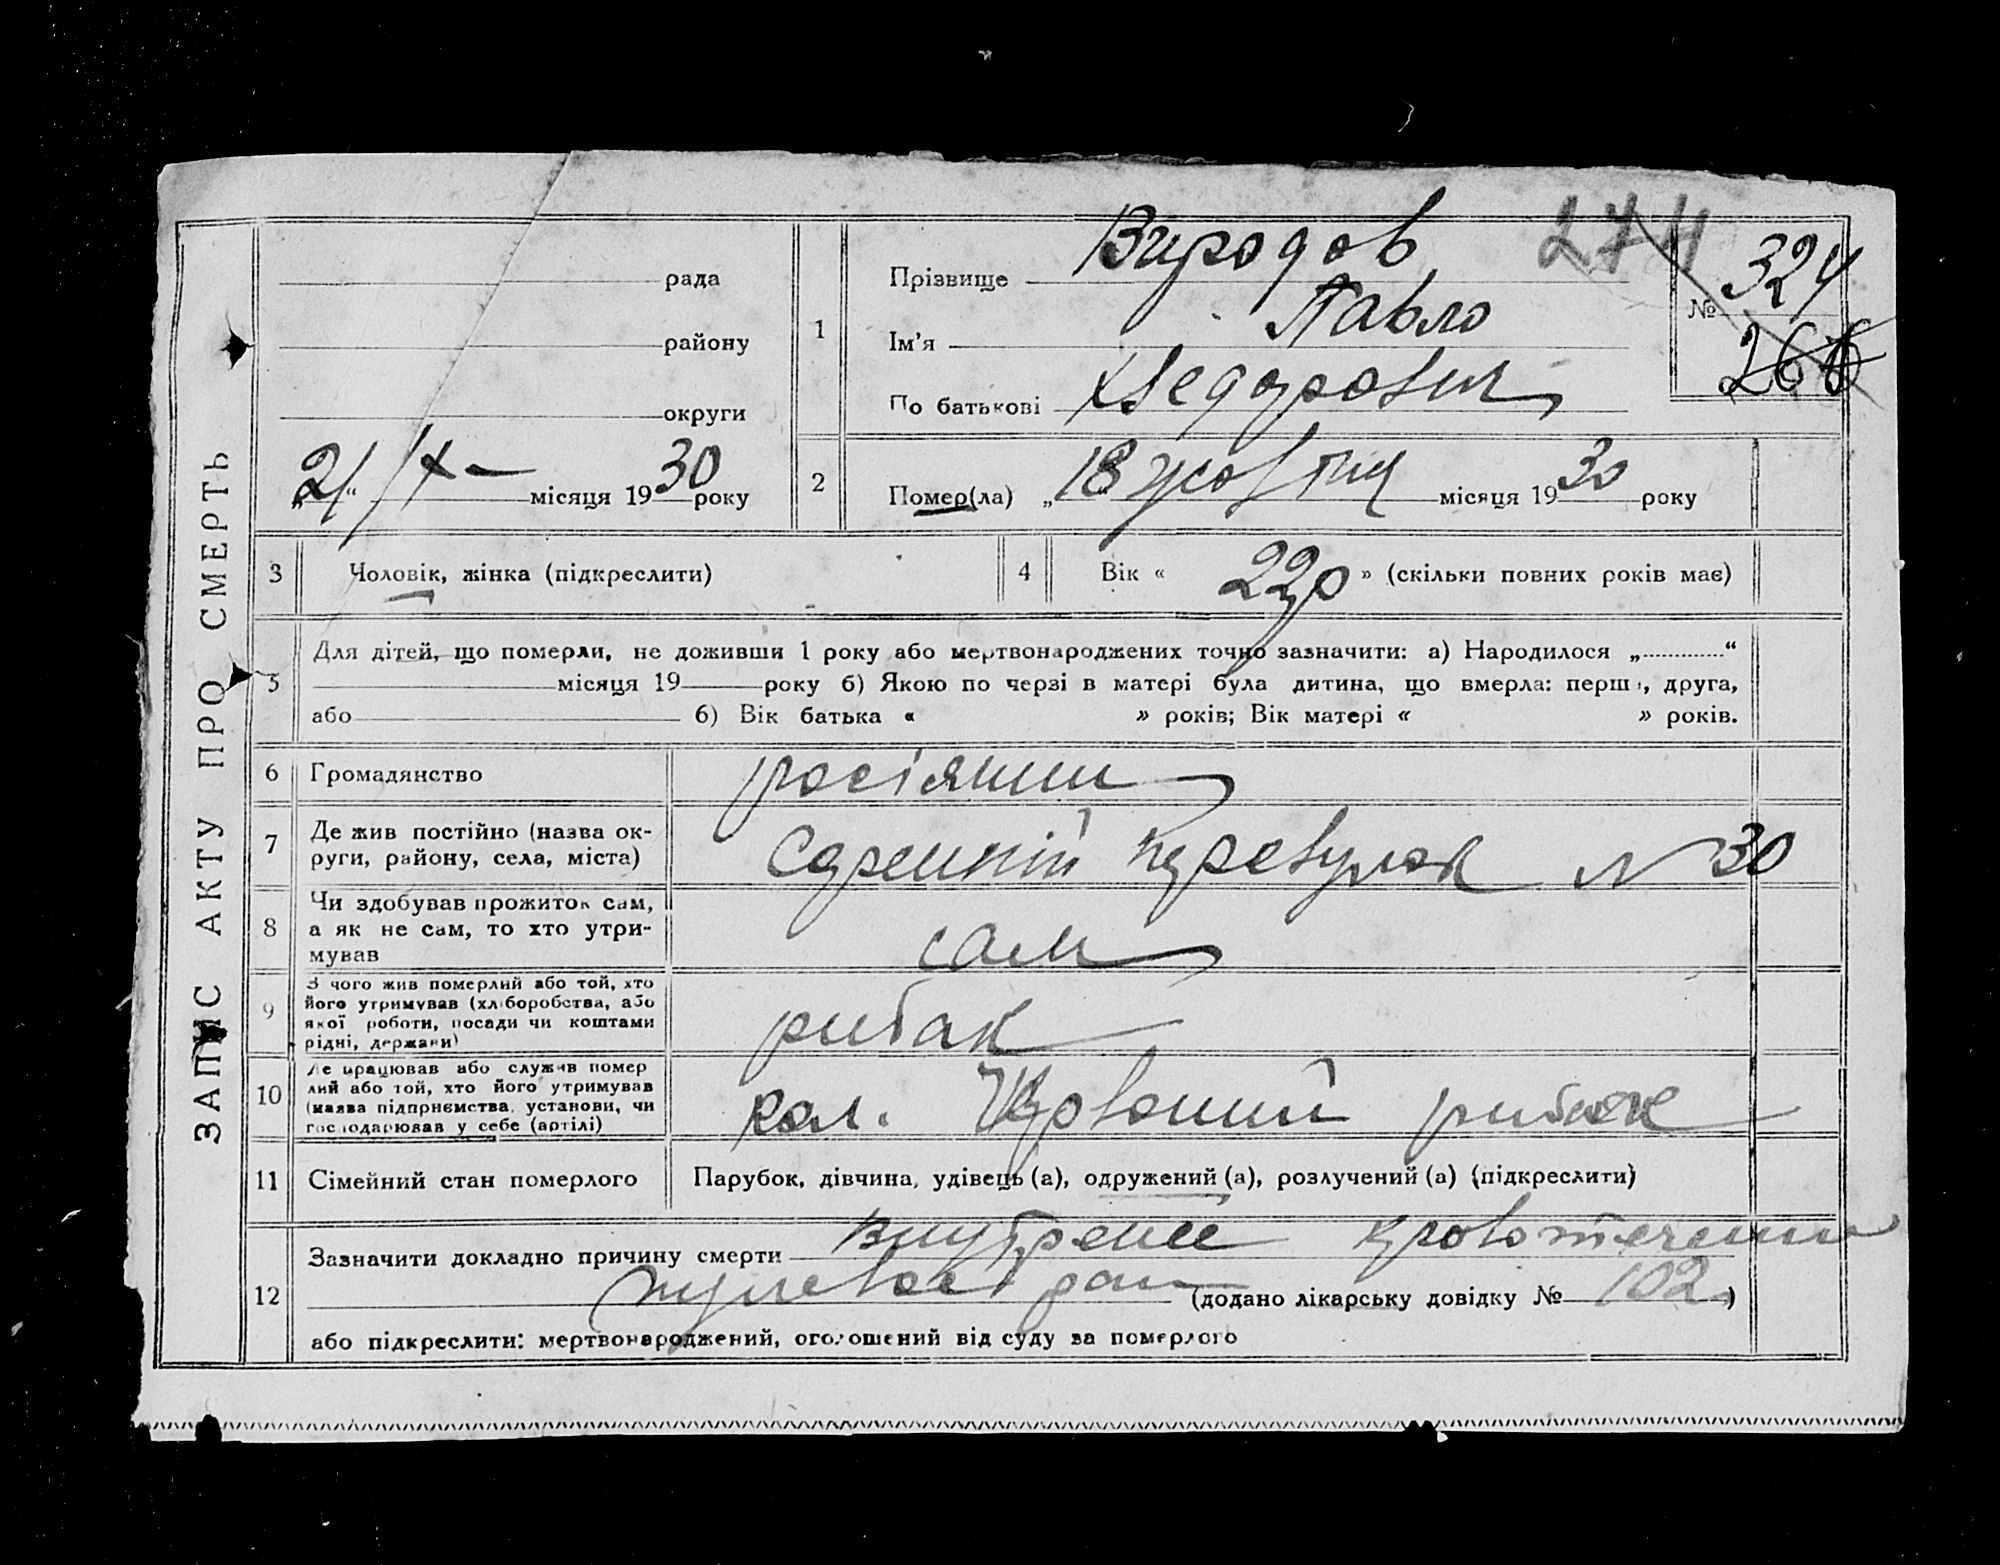 ЗАПИС АКТУ ПРО СМЕРТЬ
рада
району
округи
„21“ X – місяця 1930 року
1
Прізвище Виродов
Ім'я Павло
По батькові Хведорович
274
№ 324
268
2
Помер(ла) „18 жовтня місяця 1930 року
3 Чоловік, жінка (підкреслити)
4 Вік « 22 р » (скільки повних років має)
5
Для дітей, що померли, не доживши 1 року або мертвонароджених точно зазначити: а) Народилося „............“
місяця 19 року б) Якою по черзі в матері була дитина, що вмерла: перша, друга,
або б) Вік батька « » років; Вік матері « » років.
6 Громадянство росіянин
7 Де жив постійно (назва ок-
руги, району, села, міста)
перевулок № 30
8 Чи здобував прожиток сам,
а як не сам, то хто утри-
мував
сам
9 З чого жив померлий або той, хто
його утримував (хліборобства, або
якої роботи, посади чи коштами
рідні, держави)
рибак
10 Де працював або служив помер
лий або той, хто його утримував
(назва підприємства, установи, чи
господарював у себе (артілі)
кол. Червоний рибак
11 Сімейний стан померлого
Парубок, дівчина, удівець (а), одружений (а), розлучений (а) (підкреслити)
12
Зазначити докладно причину смерти внутренее кровотечение
(додано лікарську довідку № 102)
або підкреслити: мертвонароджений, оголошений від суду за померлого